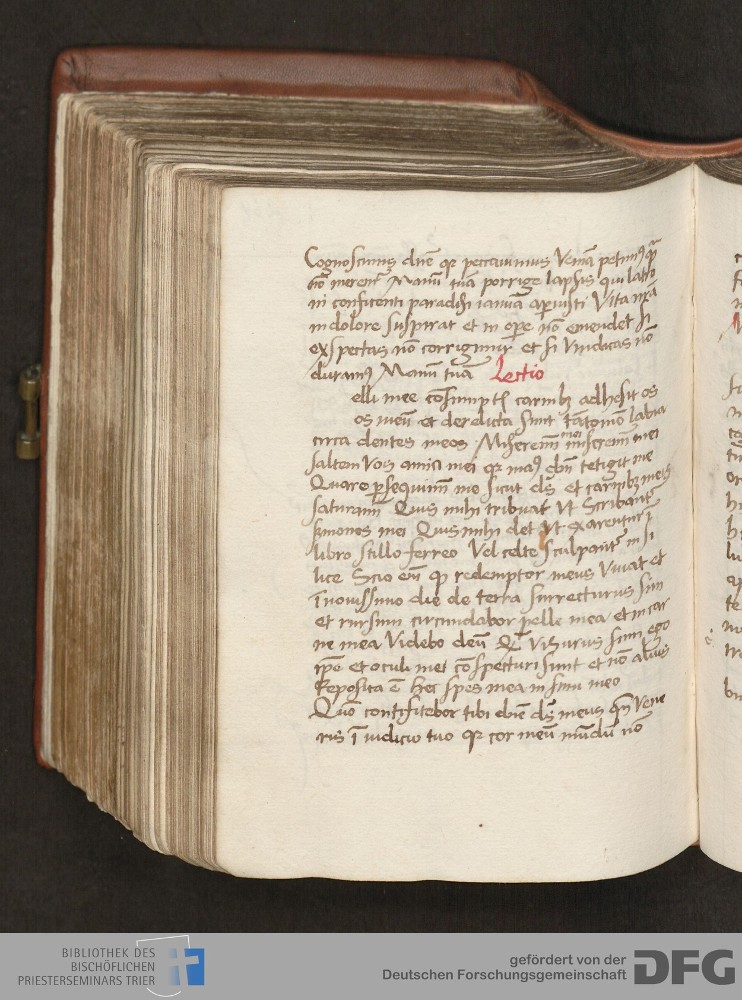 Cognoscimus dn̄e qꝛ peccavimus Veniā petim9 quā
nō merem̄ Manū tuā porrige lapsis qui latro
ni confitenti paradisi ianuā aperuisti Vita nr̄a
in dolore suspirat et in ope nō emendet Si
exspectas nō corrigimur et si Vindicas nō
duram9 Manū tuā Lectio
elli mee cōsumptis carnibꝫ adhesit os
os meū et derelicta sunt tātōmō labia
circa dentes meos Miseremī mei miseremī mei
saltem Vos amici mei qꝛ man9 dn̄i tetigit me
Quare persequimī me sicut ds̄ et carnibꝫ meis
saturamī Quis mihi tribuat Vt Scribant̄
sermones mei Quis mihi det Vt exarentur ī
libro stillo ferreo Vel celte sculpantur in si
lice Scio em̄ qꝫ redemptor meus Vivat et
ī novissimo die de terra surrecturus sim
et rursum circumdabor pelle mea et in car
ne mea Videbo deū Quē Visurus sum ego
ip̄e et oculi mei cōspecturi sunt et nō alius
Reposita ē hec spes mea in sinu meo
Quō confitebor tibi dn̄e ds̄ meus qn̄ Vene
ris ī iudicio tuo qꝛ cor meū mūdū nō
BIBLIOTHEK DES
BISCHÖFLICHEN
PRIESTERSEMINARS TRIER
gefördert von der
Deutschen Forschungsgemeinschaft DFG